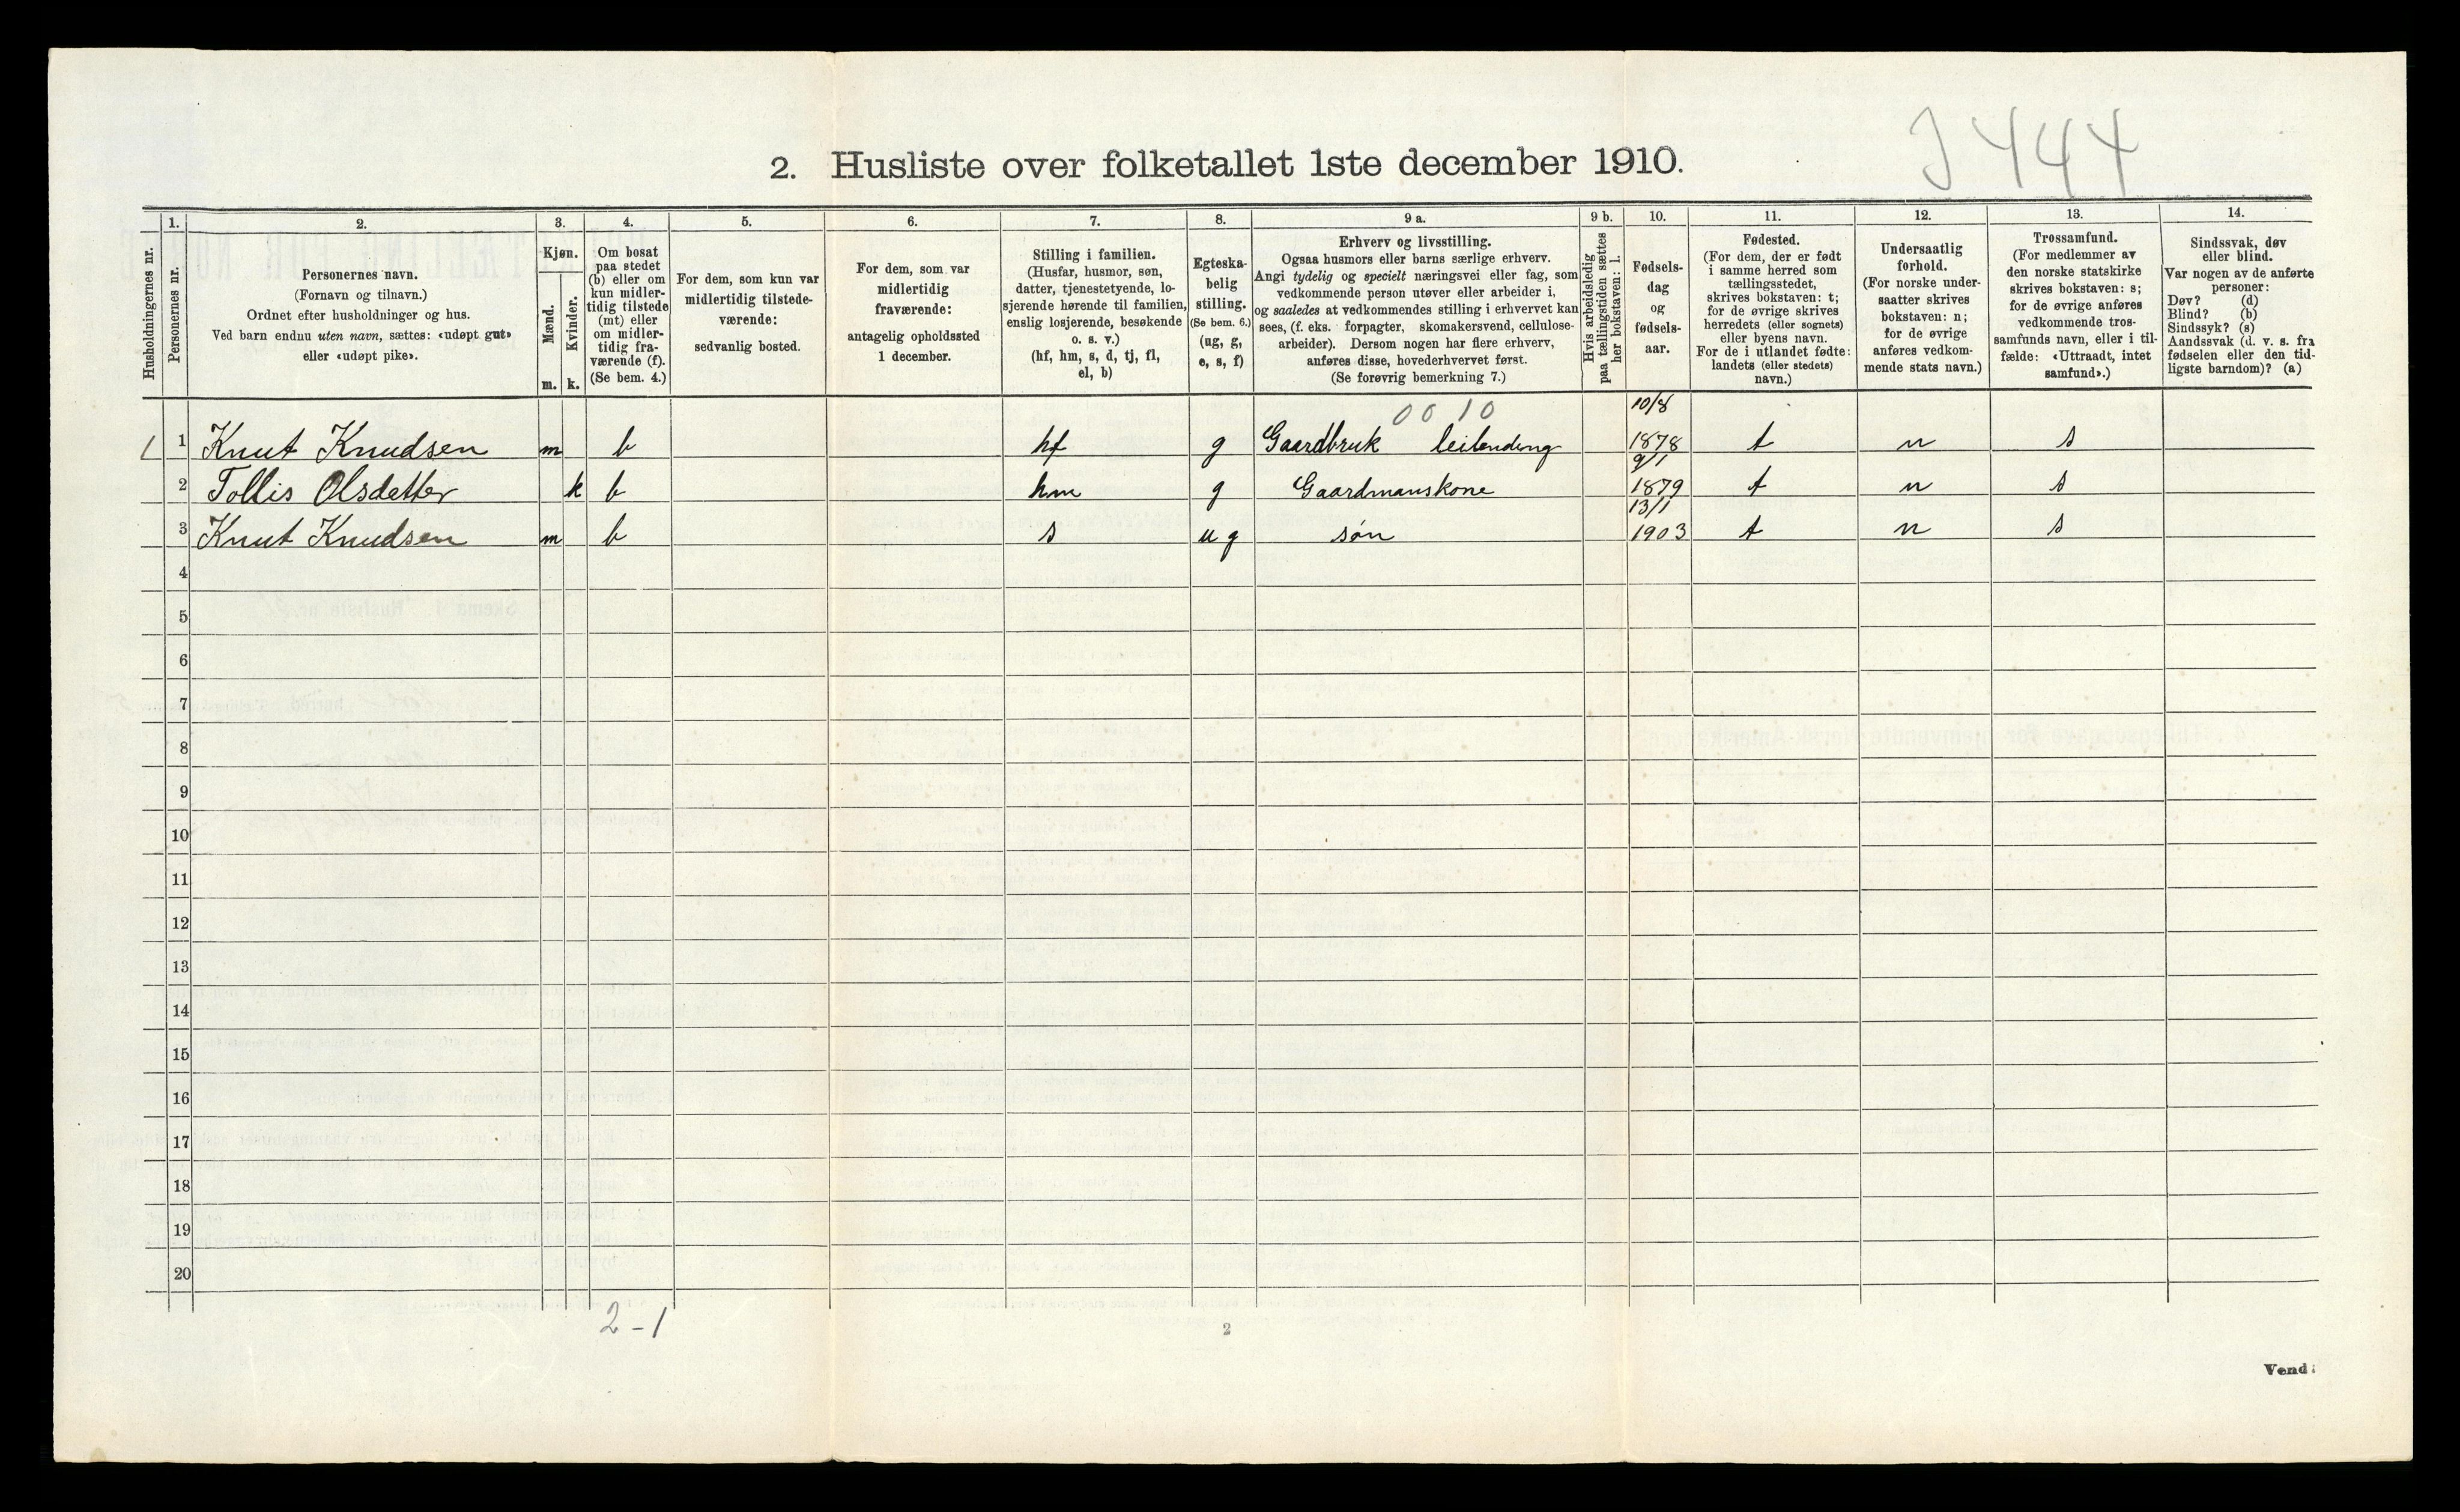 J 444
2. Husliste over folketallet 1ste december 1910.
Husholdningernes nr.
1.
Personernes nr.
2.
Personernes navn.
(Fornavn og tilnavn.)
Ordnet efter husholdninger og hus.
Ved barn endnu uten navn, sættes: «udøpt gut»
eller «udøpt pike».
3.
Kjøn.
Mænd.
Kvinder.
m. k.
4.
Om bosat
paa stedet
(b) eller om
kun midler-
tidig tilstede
(mt) eller
om midler-
tidig fra-
værende (f).
(Se bem. 4.)
5.
For dem, som kun var
midlertidig tilstede-
værende:
sedvanlig bosted.
6.
For dem, som var
midlertidig
fraværende:
antagelig opholdssted
1 december.
7.
Stilling i familien.
(Husfar, husmor, søn,
datter, tjenestetyende, lo-
sjerende hørende til familien,
enslig losjerende, besøkende
o. s. v.)
(hf, hm, s, d, tj, fl,
el, b)
8.
Egteska-
belig
stilling.
(Se bem. 6.)
(ug, g,
e, s, f)
9 a.
Erhverv og livsstilling.
Ogsaa husmors eller barns særlige erhverv.
Angi tydelig og specielt næringsvei eller fag, som
vedkommende person utøver eller arbeider i,
og saaledes at vedkommendes stilling i erhvervet kan
sees, (f. eks. forpagter, skomakersvend, cellulose-
arbeider). Dersom nogen har flere erhverv,
anføres disse, hovederhvervet først.
(Se forøvrig bemerkning 7.)
9 b.
Hvis arbeidsledig
paa tællingstiden sættes
her bokstaven: l.
10.
Fødsels-
dag
og
fødsels-
aar.
11.
Fødested.
(For dem, der er født
i samme herred som
tællingsstedet,
skrives bokstaven: t;
for de øvrige skrives
herredets (eller sognets)
eller byens navn.
For de i utlandet fødte:
landets (eller stedets)
navn.)
12.
Undersaatlig
forhold.
(For norske under-
saatter skrives
bokstaven: n;
for de øvrige
anføres vedkom-
mende stats navn.)
13.
Trossamfund.
(For medlemmer av
den norske statskirke
skrives bokstaven: s;
for de øvrige anføres
vedkommende tros-
samfunds navn, eller i til-
fælde: «Uttraadt, intet
samfund».)
14.
Sindssvak, døv
eller blind.
Var nogen av de anførte
personer:
Døv? (d)
Blind? (b)
Sindssyk? (s)
Aandssvak (d. v. s. fra
fødselen eller den tid-
ligste barndom)? (a)
0010 10/8
1 1 Knut Knudsen m b hf g Gaardbruk leilending 1878 t n s
9/1
2 Tollis Olsdatter k b hm g Gaardmanskone 1879 t n s
13/1
3 Knut Knudsen m b s ug søn 1903 t n s
4
5
6
7
8
9
10
11
12
13
14
15
16
17
18
19
20
2-1
2
Vend!